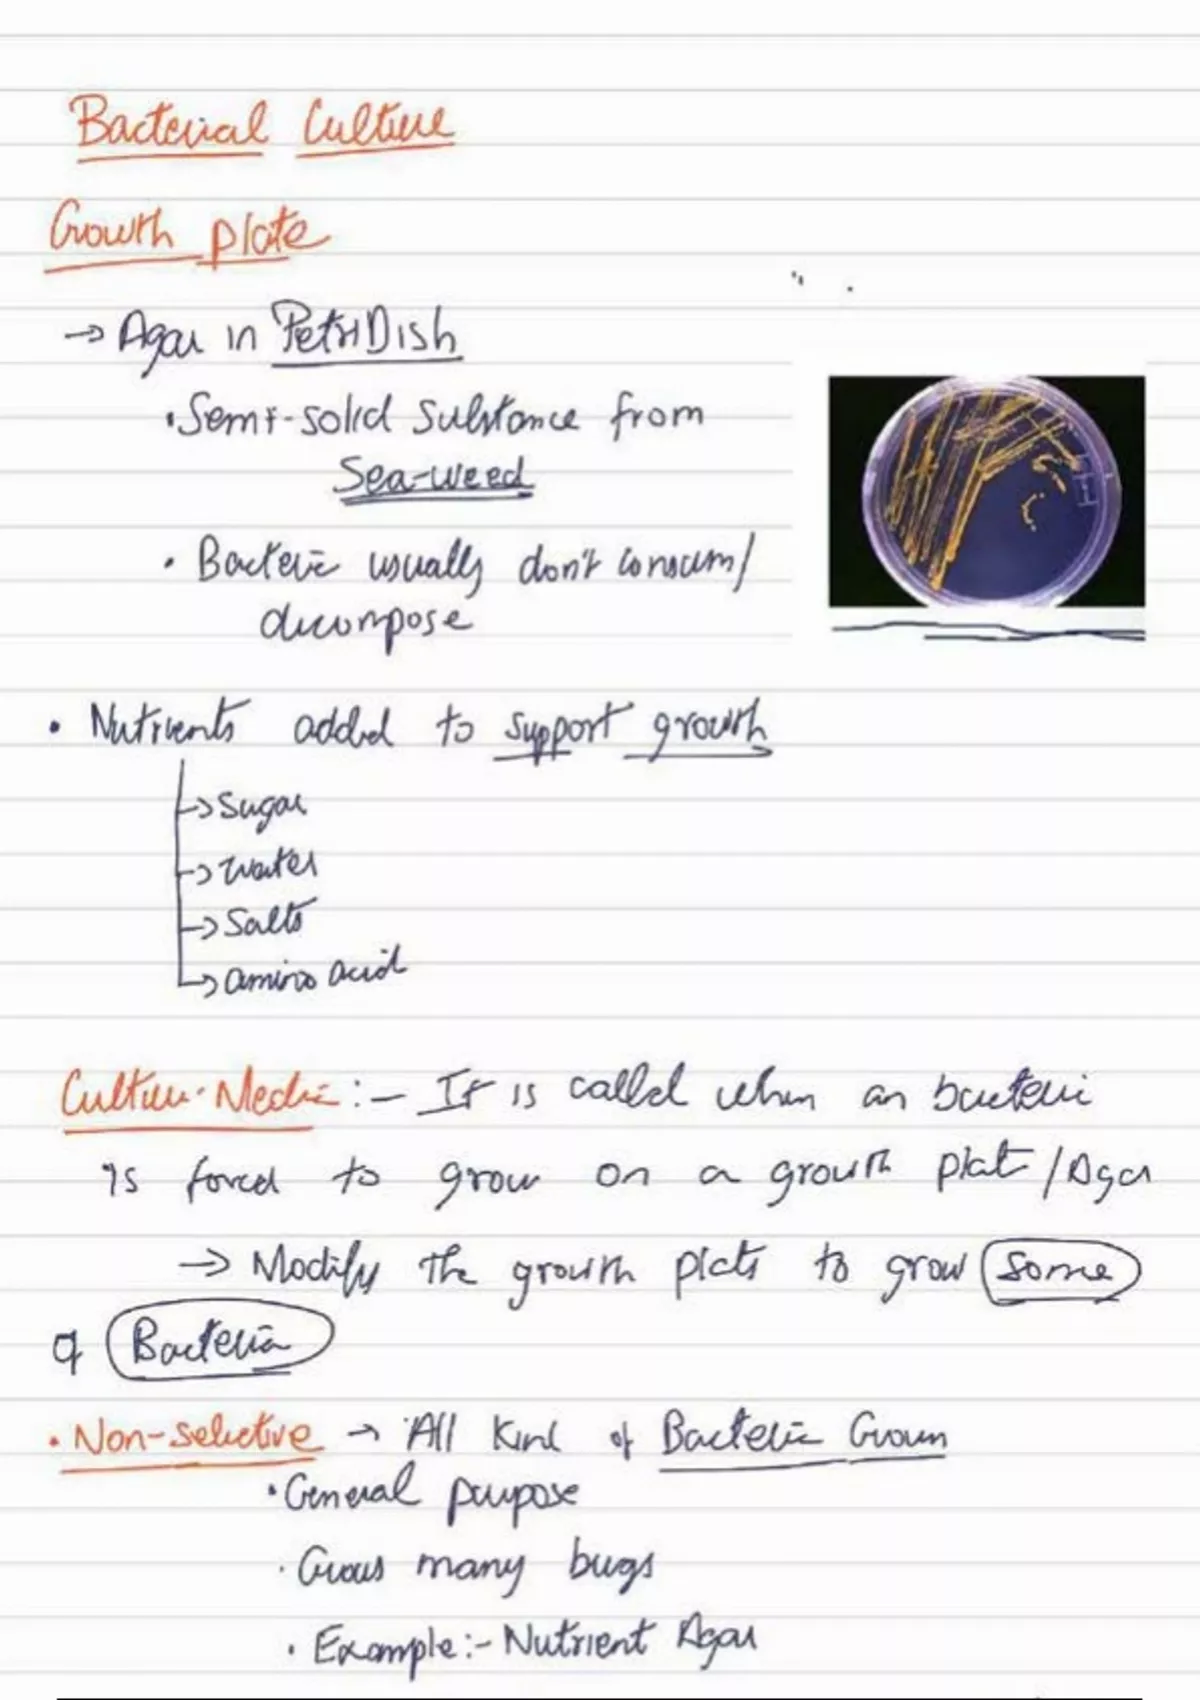 Bacterial Culture
Growth plate
→ Agar in Petri Dish
• Semi-solid substance from
Sea-weed
• Bacteria usually don't consum/
decompose
• Nutrients added to support growth
→ Sugar
→ water
→ Salts
→ amino acid
Culture Media :- It is called when an bacteria
is forced to grow on a growth plat / Agar
→ Modify the growth plats to grow some
of Bacteria
• Non-selective → All Kind of Bacteria Grown
• General purpose
• Grows many bugs
• Example :- Nutrient Agar